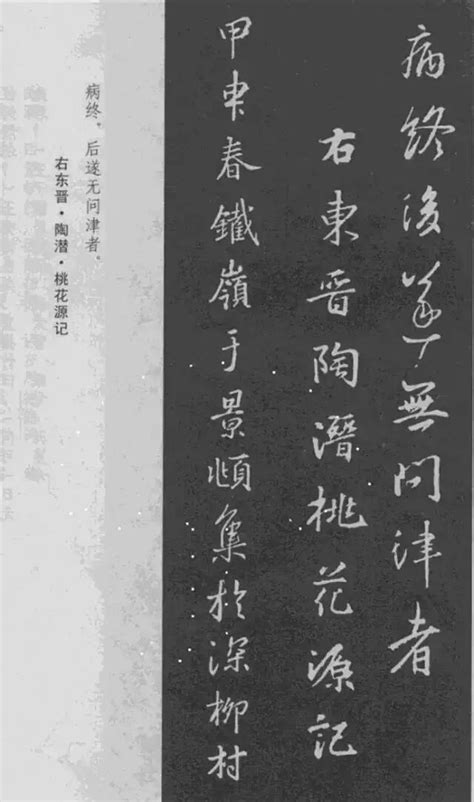 病终後遂無问津者
右東晋陶潛桃花源記
甲申春鐵嶺于景頫集於深柳村
病终。后遂无问津者。
右东晋·陶潜·桃花源记